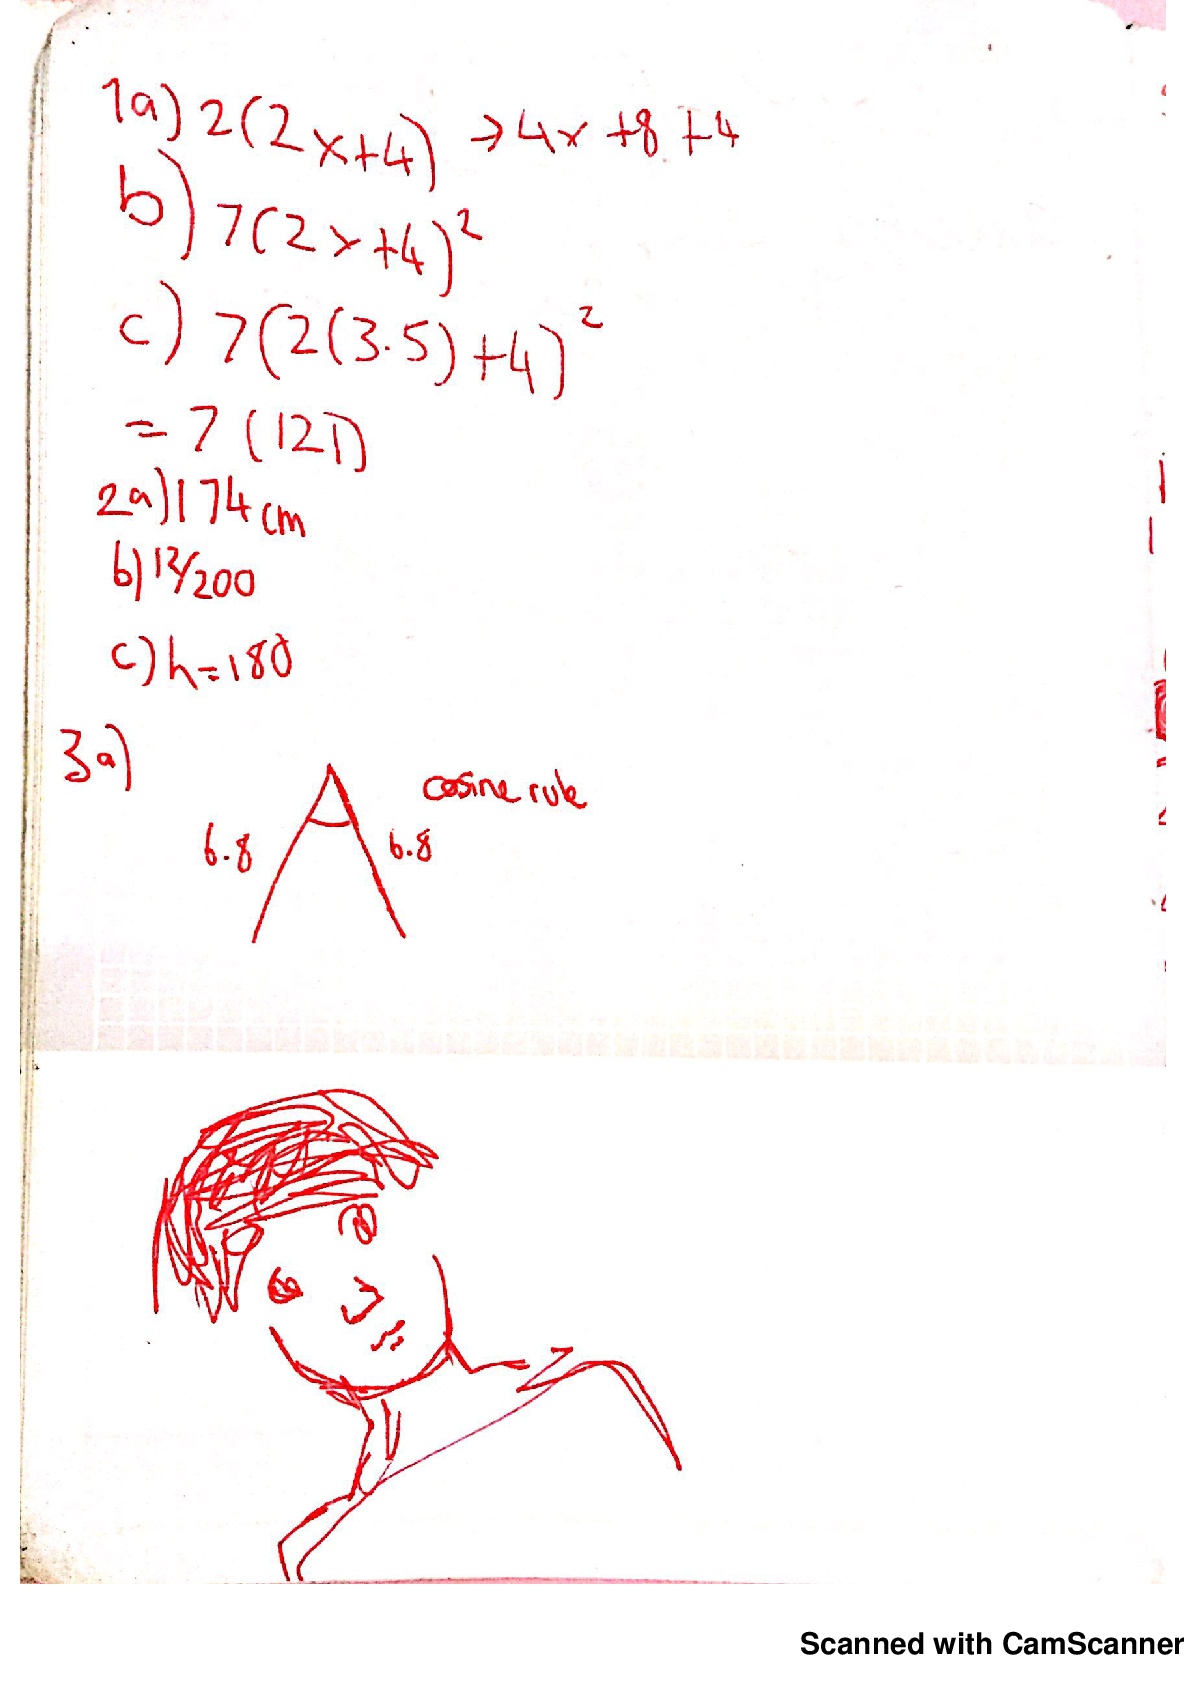 1a) 2(2x+4) → 4x +8 +4
b) 7(2x+4)²
c) 7(2(3.5)+4)²
= 7 (121)
2a) 174 cm
b) 12/200
c) h=180
3a)
cosine rule
6.8 6.8
Scanned with CamScanner